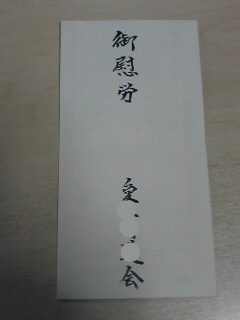 御慰労
愛会